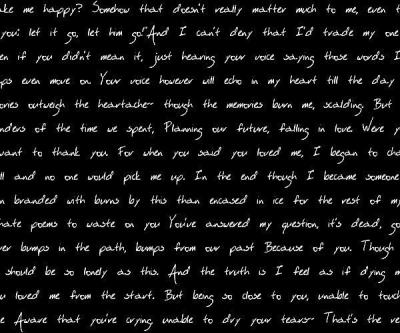 ake me happy? Somehow that doesn't really matter much to me, even t
you: let it go, let him go!"And I can't deny that I'd trade my one
en if you didn't mean it, just hearing your voice saying those words I
ps even move on. Your voice however will echo in my heart till the day
ories outweigh the heartache~ though the memories burn me, scalding. But
nders of the time we spent, Planning our future, falling in love. Were y
want to thank you. For when you said you loved me, I began to cha
ll and no one would pick me up. In the end though I became someone
n branded with burns by this than encased in ice for the rest of my
nate poems to waste on you You've answered my question, it's dead, go
ver bumps in the path, bumps from our past Because of you. Though
should be so lonely as this. And the truth is I feel as if dying m
u loved me from the start. But being so close to you, unable to touch
e Aware that you're crying, unable to dry your tears~ That's the ve